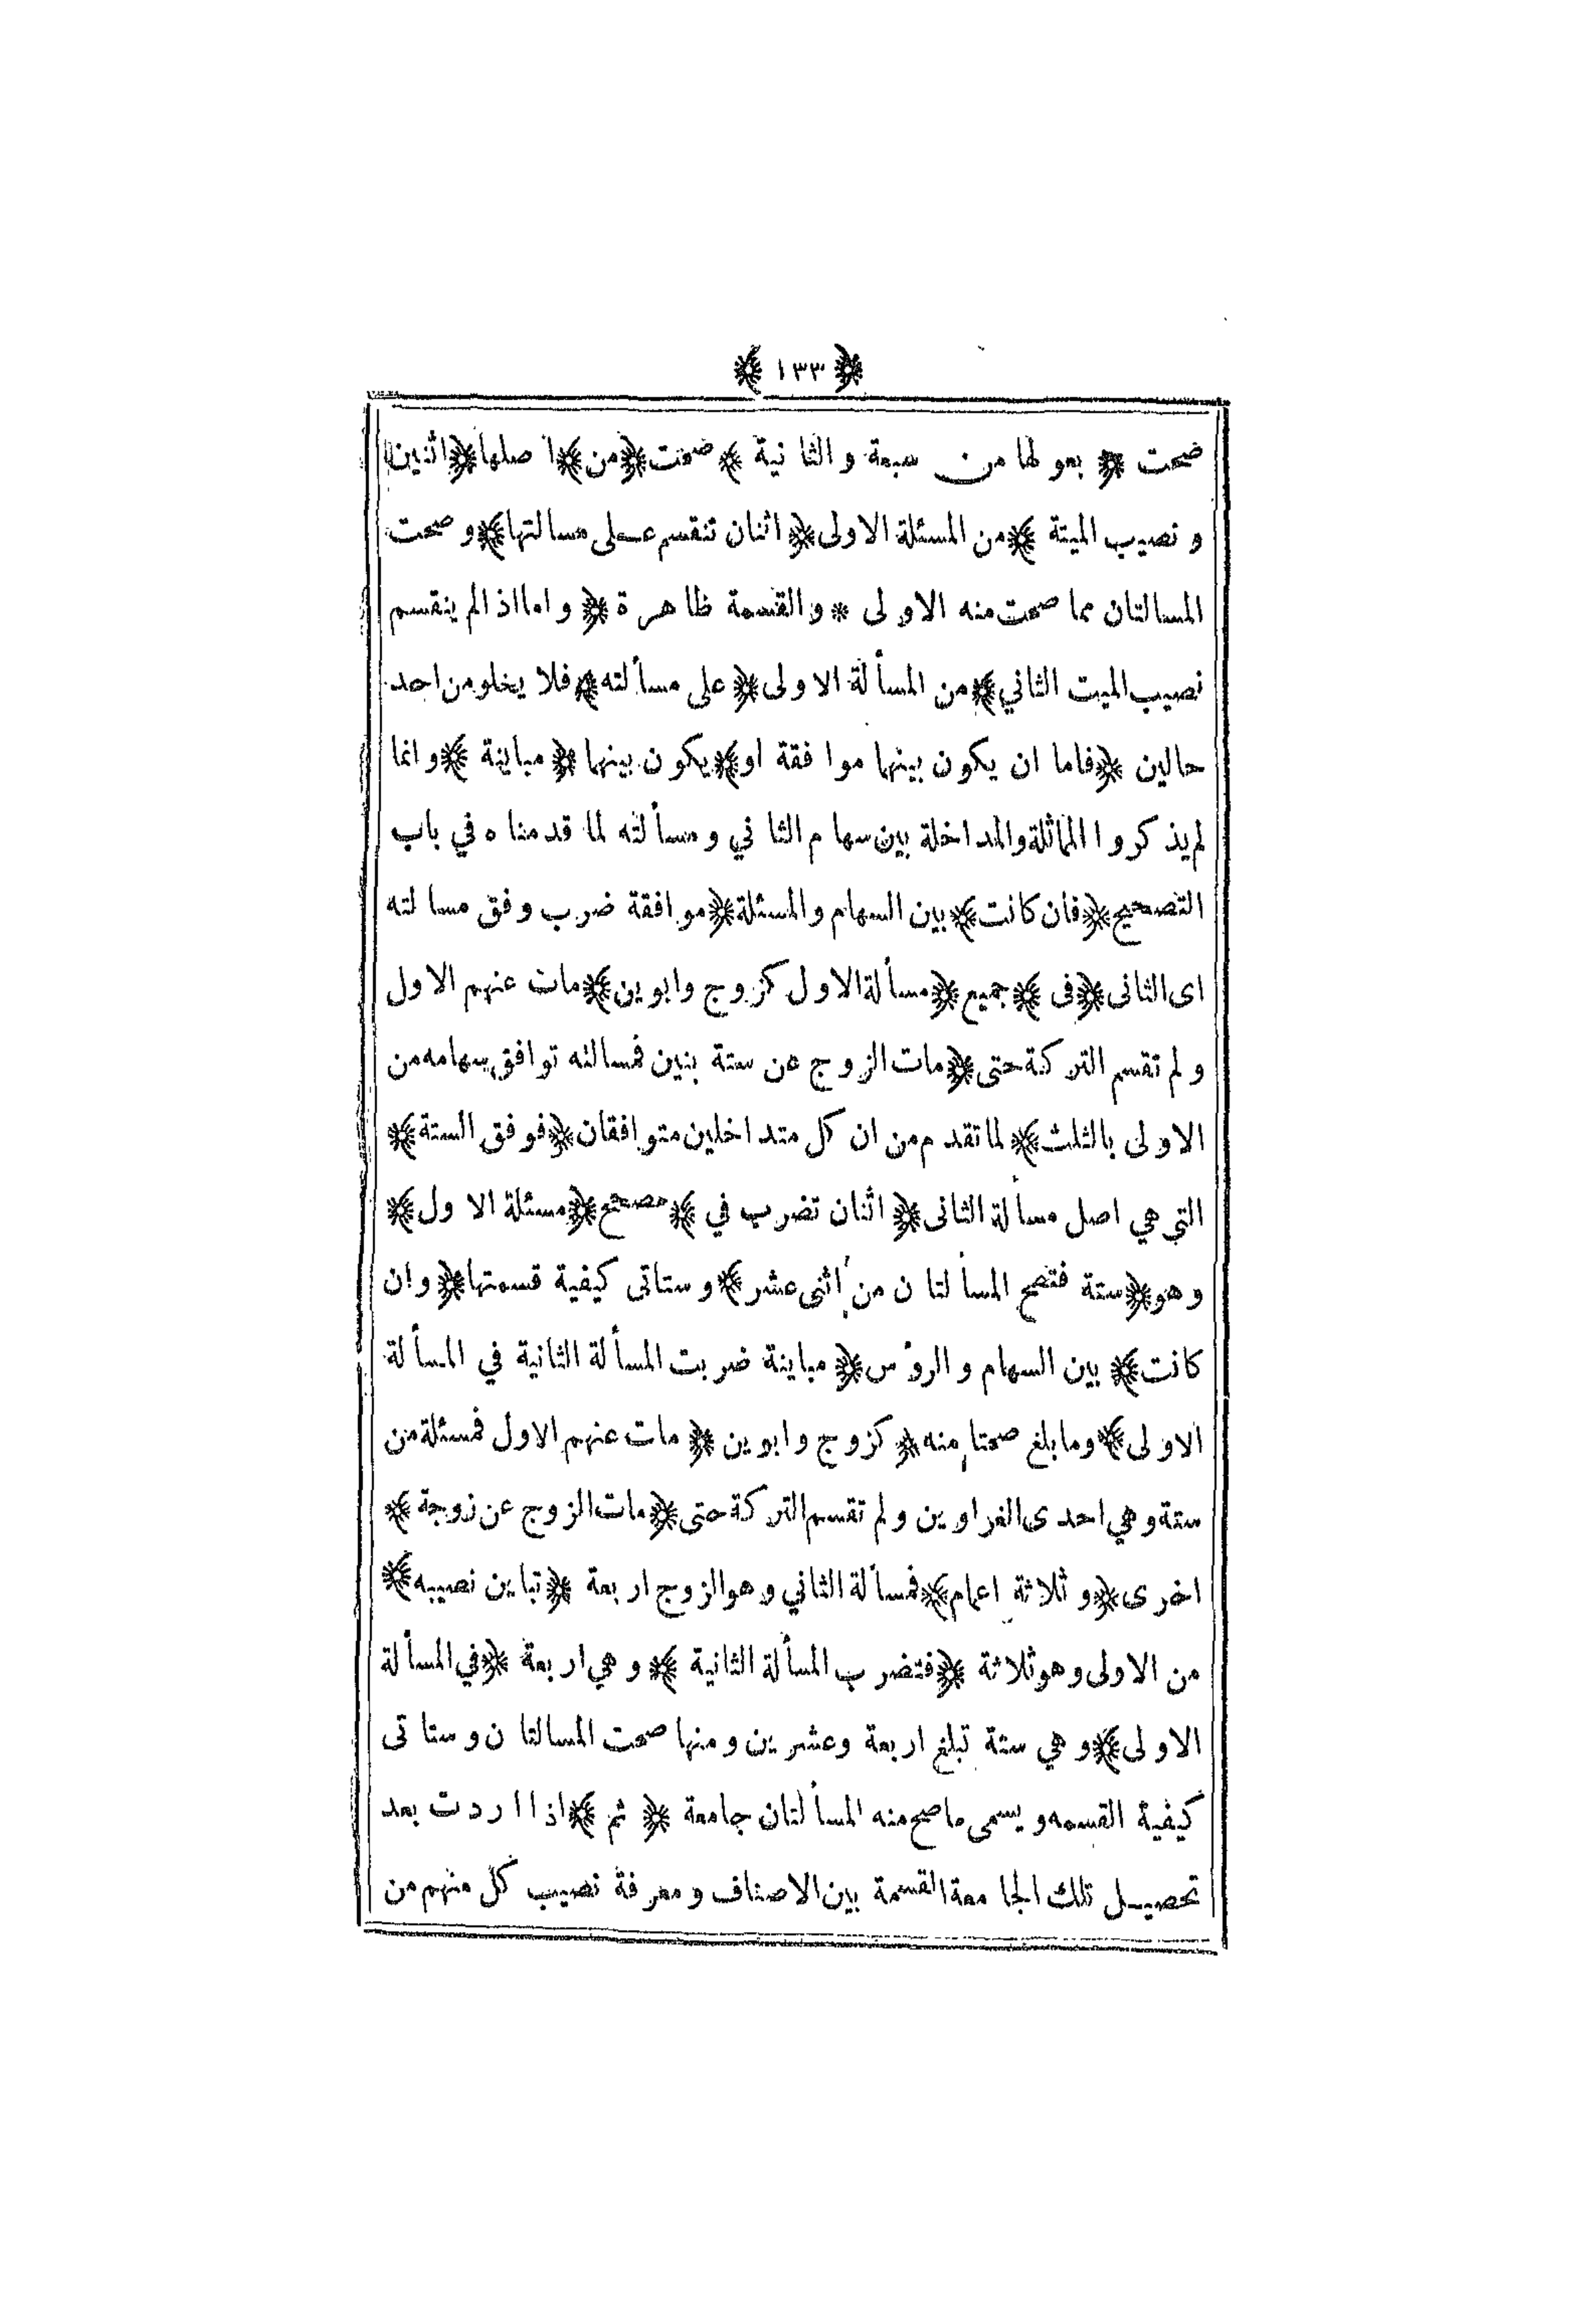 ﴿ ١٣٣ ﴾
صحت ﴿ بعولها من سبعة والثانية ﴾ صحت ﴿ من ﴾ اصلها ﴿ اثنين
ونصيب الميتة ﴾ من المسئلة الاولى ﴿ اثنان تنقسم على مسالتها ﴾ وصحت
المسالتان مما صحت منه الاولى * والقسمة ظاهرة ﴿ واما اذا لم ينقسم
نصيب الميت الثاني ﴾ من المسألة الاولى ﴿ على مسألته ﴾ فلا يخلو من احد
حالين ﴿ فاما ان يكون بينهما موافقة او ﴾ يكون بينهما ﴿ مباينة ﴾ وانما
لم يذكروا المماثلة والمداخلة بين سهام الثاني ومسألته لما قدمناه في باب
التصحيح ﴿ فان كانت ﴾ بين السهام والمسئلة ﴿ موافقة ضرب وفق مسالته
اى الثانى ﴿ فى ﴾ جميع ﴿ مسألة الاول كزوج وابوين ﴾ مات عنهم الاول
ولم تقسم التركة حتى ﴿ مات الزوج عن ستة بنين فمسالته توافق سهامه من
الاولى بالثلث ﴾ لما تقدم من ان كل متداخلين متوافقان ﴿ فوفق الستة ﴾
التي هي اصل مسألة الثانى ﴿ اثنان تضرب في ﴾ مصحح ﴿ مسئلة الاول ﴾
وهو ﴿ ستة فتصح المسألتان من اثنى عشر ﴾ وستاتى كيفية قسمتها ﴿ وان
كانت ﴾ بين السهام والرؤس ﴿ مباينة ضربت المسألة الثانية في المسألة
الاولى ﴾ وما بلغ صحتا منه ﴿ كزوج وابوين ﴿ مات عنهم الاول فمسئلة من
ستة وهي احدى الغراوين ولم تقسم التركة حتى ﴿ مات الزوج عن زوجة ﴾
اخرى ﴿ وثلاثة اعمام ﴾ فمسألة الثاني وهو الزوج اربعة ﴿ تباين نصيبه ﴾
من الاولى وهو ثلاثة ﴿ فتضرب المسألة الثانية ﴾ وهي اربعة ﴿ في المسألة
الاولى ﴾ وهي ستة تبلغ اربعة وعشرين ومنها صحت المسالتان وستاتى
كيفية القسمه ويسمى ما صح منه المسألتان جامعة ﴿ ثم ﴾ اذا اردت بعد
تحصيل تلك الجامعة القسمة بين الاصناف ومعرفة نصيب كل منهم من